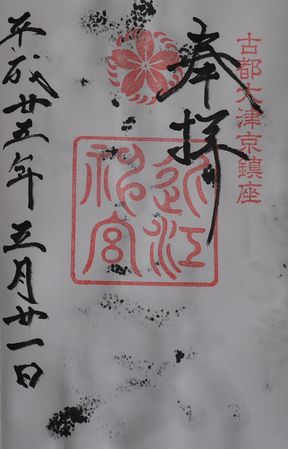 古都大津京鎮座
奉拝
近江
神宮
平成廿五年五月廿一日